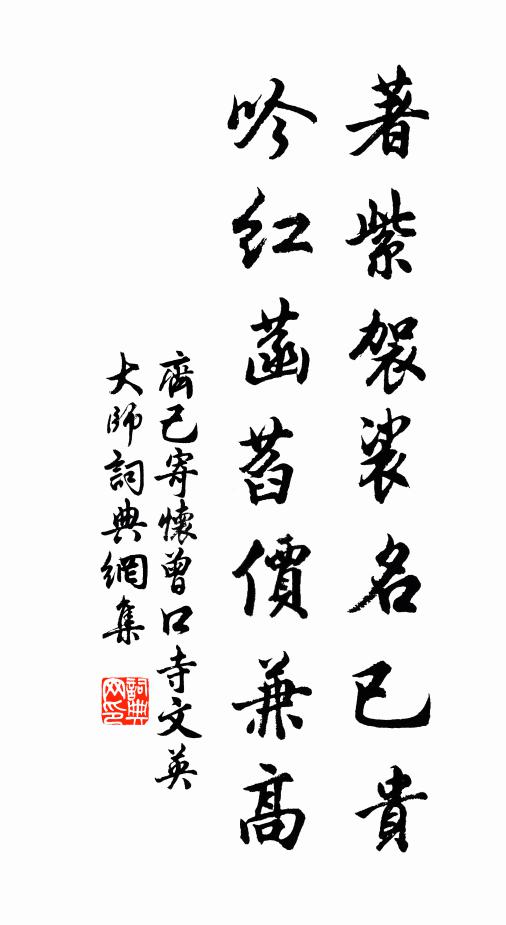 著紫袈裟名已貴
吟紅菡萏價兼高
齊己寄懷曾口寺文英
大師詞典網集
詞典
网印